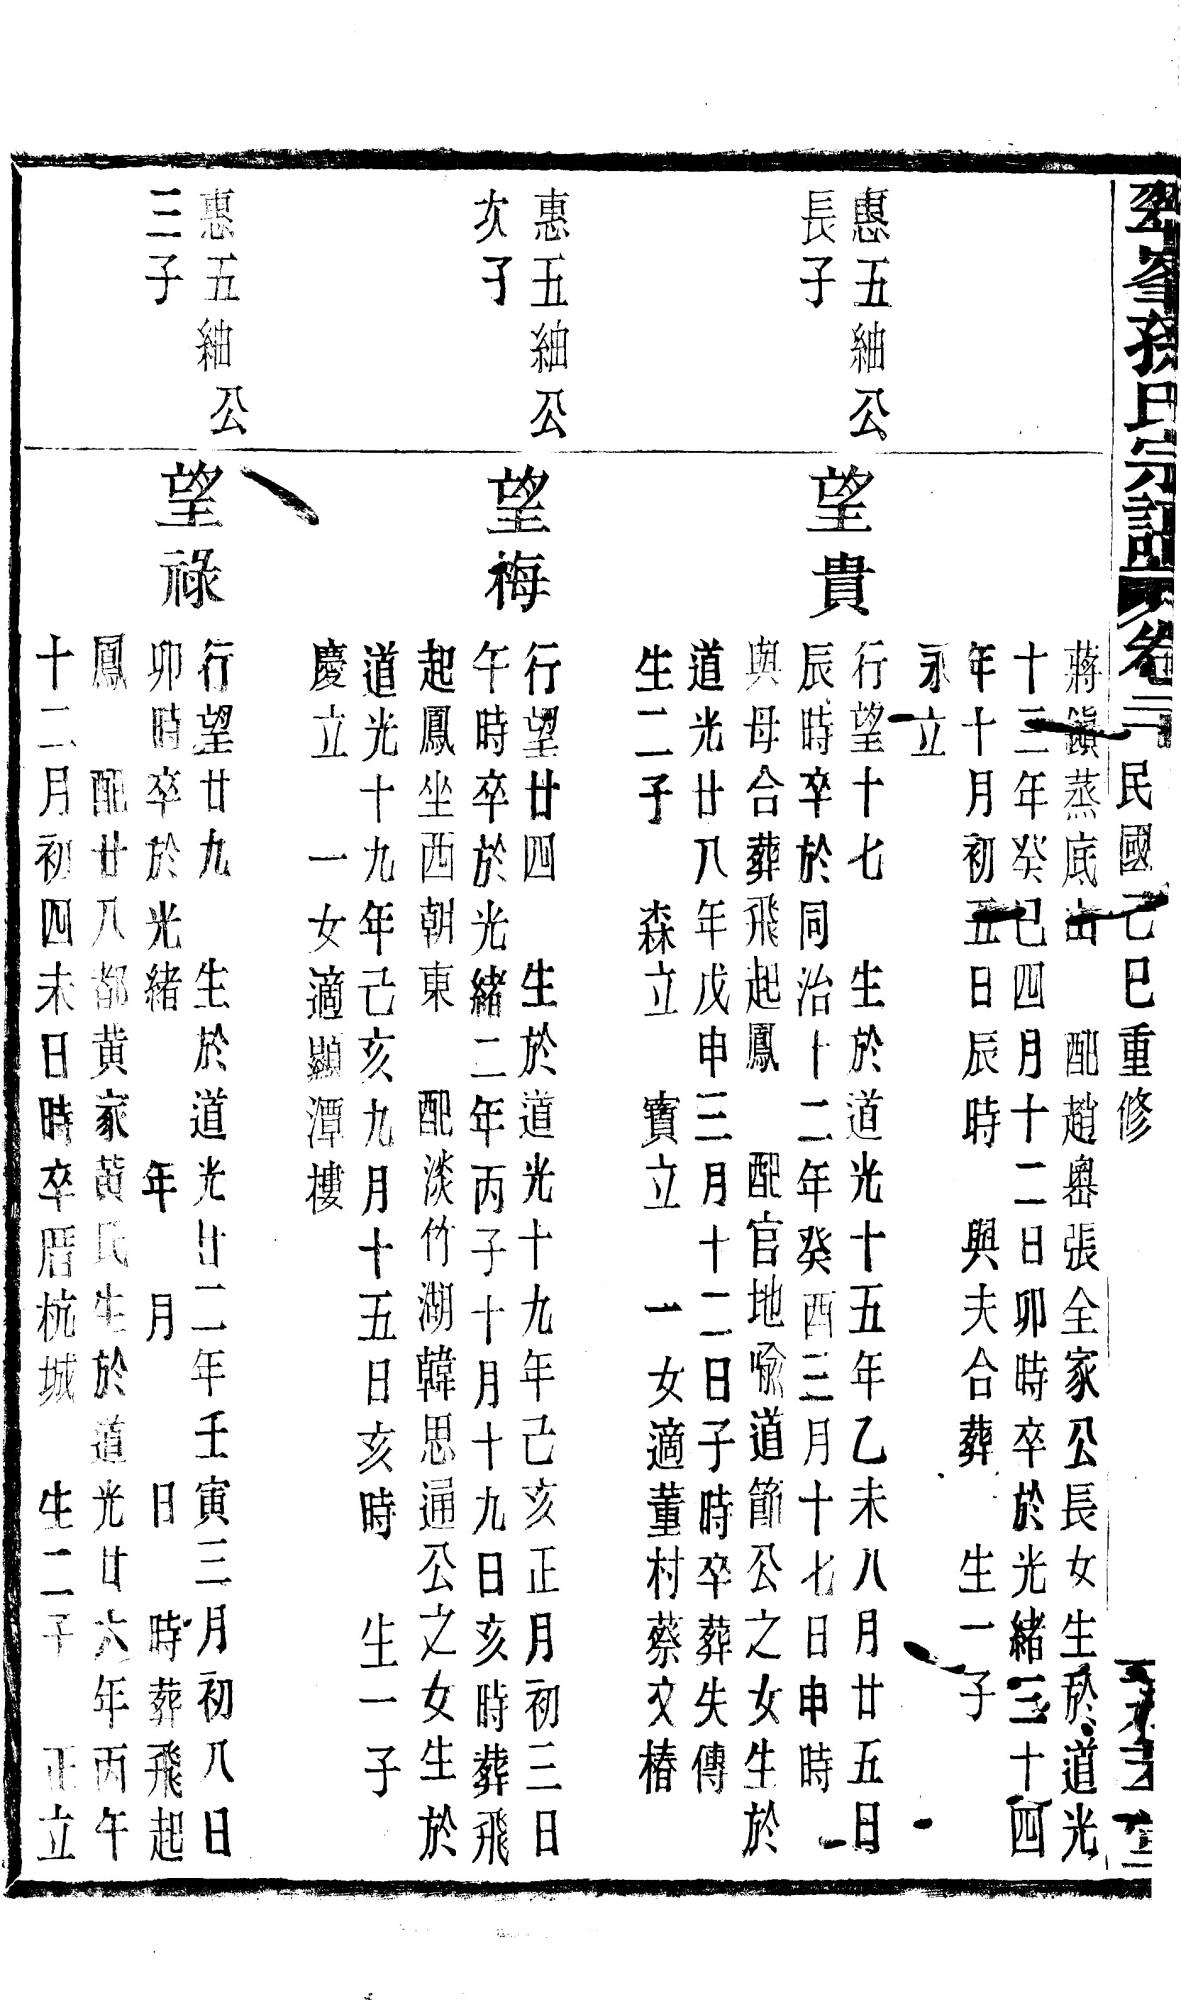 孫氏宗譜 卷二 民國己巳重修
蔣鎮蒸底出 配趙嶴張全家公長女生於道光
十三年癸巳四月十二日卯時卒於光緒三十四
年十月初五日辰時 與夫合葬 生一子
永立
惠五紬公
長子
望貴
行望十七 生於道光十五年乙未八月廿五日
辰時卒於同治十二年癸酉三月十七日申時
與母合葬飛起鳳 配官地喩道節公之女生於
道光廿八年戊申三月十二日子時卒葬失傳
生二子 森立 寶立 一女適董村蔡文椿
惠五紬公
次子
望梅
行望廿四 生於道光十九年己亥正月初三日
午時卒於光緒二年丙子十月十九日亥時葬飛
起鳳坐西朝東 配淡竹湖韓思通公之女生於
道光十九年己亥九月十五日亥時 生一子
慶立 一女適顯潭樓
惠五紬公
三子
望祿
行望廿九 生於道光廿二年壬寅三月初八日
卯時卒於光緒 年 月 日 時葬飛起
鳳 配廿八都黄家黄氏生於道光廿六年丙午
十二月初四未日時卒厝杭城 生二子 正立